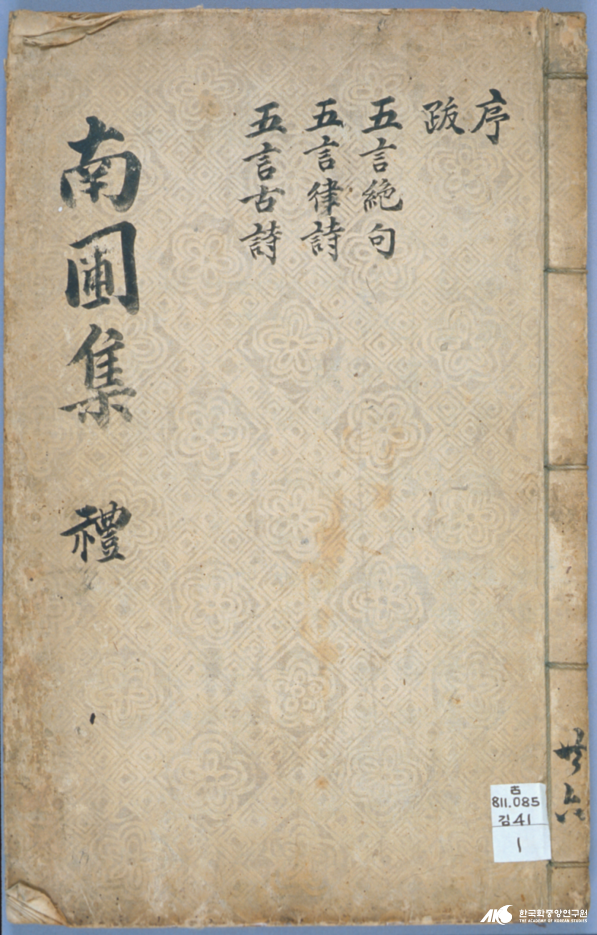 序
跋
五言絶句
五言律詩
五言古詩
南圃集 禮
古
811.085
김41
1
AKS 한국학중앙연구원
THE ACADEMY OF KOREAN STUDIES